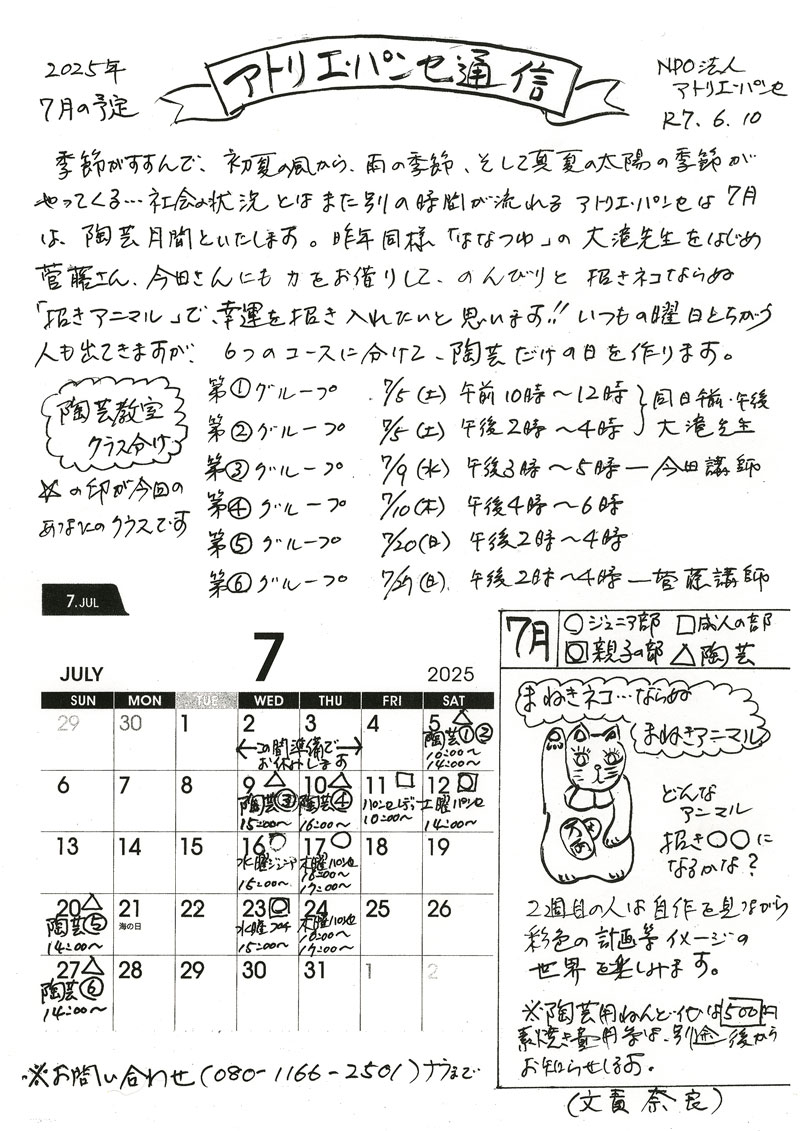 2025年
7月の予定
アトリエ・パンセ通信
NPO法人
アトリエ・パンセ
R7.6.10
季節がすすんで、初夏の風から、雨の季節、そして真夏の太陽の季節が
やってくる…社会の状況とはまた別の時間が流れるアトリエ・パンセは7月
は、陶芸月間といたします。昨年同様「はなつゆ」の大滝先生をはじめ
菅藤さん、今田さんにも力をお借りして、のんびりと招きネコならぬ
「招きアニマル」で、幸運を招き入れたいと思います!!いつもの曜日とちがう
人も出てきますが、6つのコースに分けて、陶芸だけの日を作ります。
陶芸教室
クラス分け
☆の印が今回の
あなたのクラスです
第①グループ 7/5(土) 午前10時〜12時
第②グループ 7/5(土) 午後2時〜4時
同日午前・午後
大滝先生
第③グループ 7/9(水) 午後3時〜5時ー今田講師
第④グループ 7/10(木) 午後4時〜6時
第⑤グループ 7/20(日) 午後2時〜4時
第⑥グループ 7/27(日) 午後2時〜4時ー菅藤講師
7.JUL
JULY 7 2025
SUN MON TUE WED THU FRI SAT
29 30 1 2 3 4 5△
この間準備で
お休みします
陶芸①②
10:00〜
14:00〜
6 7 8 9△ 10△ 11□ 12◎
陶芸③ 陶芸④ 土曜パンセ
15:00〜 16:00〜 10:00〜 14:00〜
13 14 15 16○ 17○ 18 19
水曜ジュニア 木曜パンセ
15:00〜 16:00〜
17:00〜
20△ 21 22 23 24 25 26
陶芸⑤ 海の日 水曜 木曜パンセ
14:00〜 15:00〜 16:00〜
17:00〜
27△ 28 29 30 31 1 2
陶芸⑥
14:00〜
7月
○ジュニア部 □成人の部
親子の部 △陶芸
まねきネコ…ならぬ
まねきアニマル
どんな
アニマル
招き○○に
なるかな?
2週目の人は自作を見ながら
彩色の計画等イメージの
世界を楽しみます。
※陶芸用ねんど代は500円
素焼き 用等は、別途後から
お知らせします。
※お問い合わせ(080-1166-2501)ナラまで
(文責 奈良)